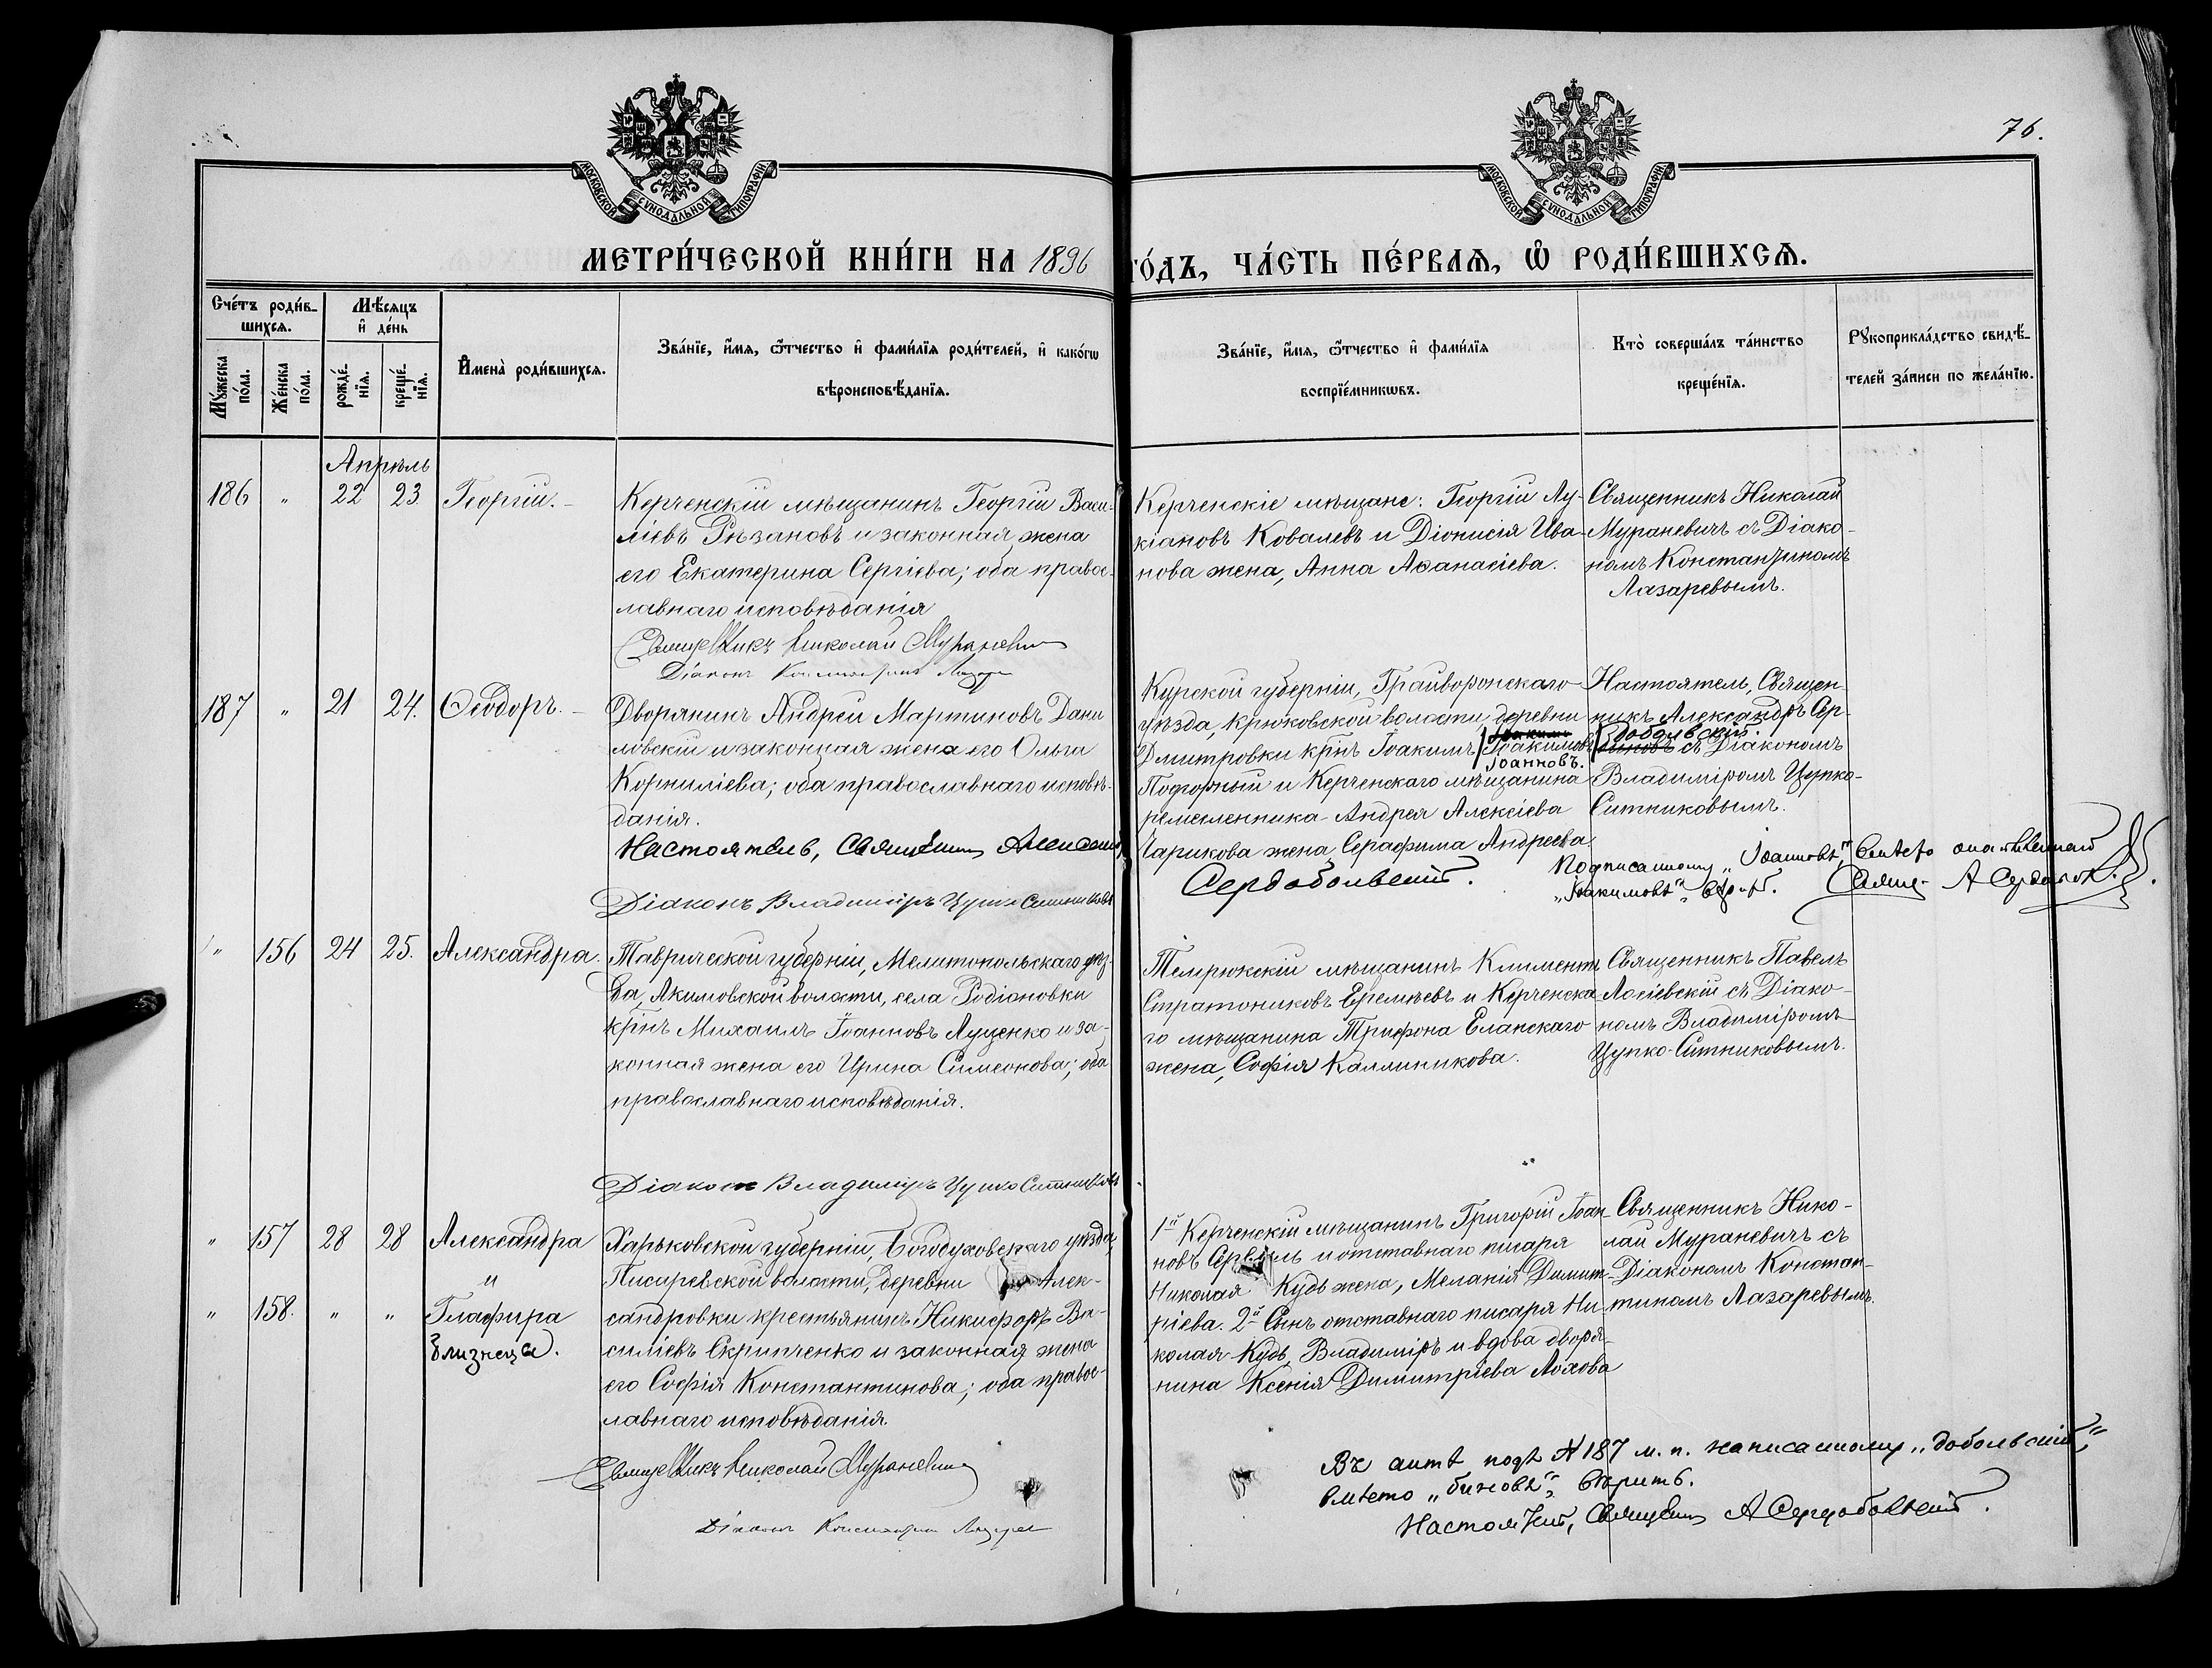 76.
МОСКОВСКОЙ СѴНОДАЛЬНОЙ ТИПОГРАФІИ
МОСКОВСКОЙ СѴНОДАЛЬНОЙ ТИПОГРАФІИ
МЕТРИ́ЧЕСКОЙ КНИ́ГИ НА 1896 ГО́ДЪ, ЧА́СТЬ ПЕ́РВАѦ, Ѡ҆ РОДИ́ВШИХСѦ.
Сче́тъ роди́в-
шихсѧ.
Мꙋ́жеска по́ла.
Же́нска по́ла.
Мѣ́сѧцъ
и҆ де́нь
рожде́-нїѧ.
креще́-нїѧ.
И҆мена̀ роди́вшихсѧ.
Зва́нїе, и҆́мѧ, ѻ҆́тчество и҆ фами́лїѧ роди́телей, и҆ како́гѡ
вѣроисповѣ́данїѧ.
Зва́нїе, и҆́мѧ, ѻ҆́тчество и҆ фами́лїѧ
воспрїе́мникѡвъ.
Кто̀ соверша́лъ та́инство
креще́нїѧ.
Рꙋкоприкла́дство свидѣ́-
телей за́писи по жела́нїю.
Апрѣль
186 " 22 23. Георгій. -
Керченскій мѣщанинъ Георгій Васи-
ліевъ Рѣзановъ и законная жена
его Екатерина Сергіева; оба правос-
лавнаго исповѣданія
Священникъ Николай Мураневичъ
Діаконъ Константинъ Лазарев
Керченскіе мѣщане: Георгій Лу-
кіановъ Ковалевъ и Діонисія Ива-
нова жена, Анна Аѳанасіева.
Священникъ Николай
Мураневичъ съ Діако-
номъ Константиномъ
Лазаревымъ.
187 " 21 24. Ѳеодоръ. -
Дворянинъ Андрей Мартиновъ Дани
ловскій и законная жена его Ольга
Корниліева; оба православнаго исповѣ-
данія.
Настоятель, Священникъ Александръ
Сердобольскій.
Діаконъ Владиміръ Цупко Ситниковъ
Курской губерніи, Грайворонскаго
уѣзда, Крюковской волости, деревни
Дмитровки крнъ Іоакимъ Іоакимовъ
Іоанновъ.
Подгорный и Керченскаго мѣщанина
ремесленника Андрея Алексіева
Чарикова жена, Серафима Андреева.
Настоятель, Священ-
никъ Александръ Сер-
добольскій.
биновъ съ Діакономъ
Владиміромъ Цупко-
Ситниковымъ.
Подписанному "Іоанновъ" вмѣсто
"Іоакимовъ" вѣрить. Свящ. А Сердобол.
" 156 24 25. Александра.
Таврической губерніи, Мелитопольскаго уѣз-
да, Акимовской волости, села Родіоновки
крнъ Михаилъ Іоанновъ Луценко и за-
конная жена его Ирина Симеонова; оба
православнаго исповѣданія.
Діаконъ Владиміръ Цупко Ситниковъ
Темрюкскій мѣщанинъ Климентъ
Стратониковъ Еремѣевъ и Керченска
го мѣщанина Трифона Еланскаго
жена, Софія Каллиникова.
Священникъ Павелъ
Лосіевскій съ Діако-
номъ Владиміромъ
Цупко-Ситниковымъ.
" 157 28 28 Александра
и
" 158. " " Глафира
близнеца.
Харьковской губерніи, Богодуховскаго уѣзда,
Писаревской волости, деревни Алек-
сандровки крестьянинъ Никифоръ Ва-
силіевъ Скрипченко и законная жена
его Софія Константинова; оба правос-
лавнаго исповѣданія.
Священникъ Николай Мураневичъ
Діаконъ Константинъ Лазарев
1й Керченскій мѣщанинъ Григорій Іоан-
новъ и отставнаго писаря
Николая Кудь жена, Меланія Димит-
ріева. 2й Сынъ отставнаго писаря Ни-
колая Кудь, Владиміръ и вдова дворя-
нина Ксенія Димитріева Лохова
Священникъ Нико-
лай Мураневичъ съ
Діакономъ Констан-
тиномъ Лазаревымъ.
Въ актѣ подъ № 187 м. п. написанному "добольскій"
вмѣсто "биновъ" вѣрить.
Настоятель, Священникъ А Сердобольскій.